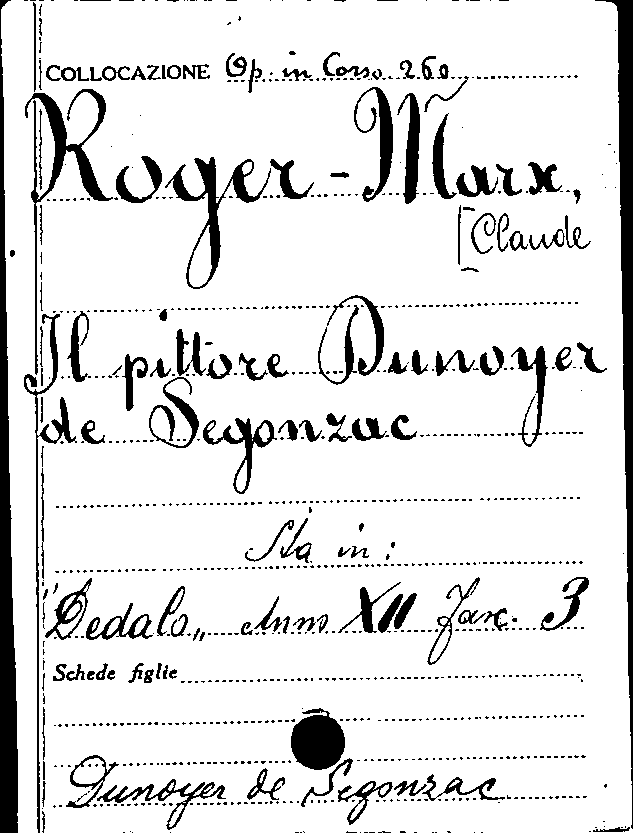 COLLOCAZIONE Op. in Corso 260
Roger-Marx,
[Claude
Il pittore Dunoyer
de Segonzac
Sta in:
"Dedalo„ Anno XII Fasc. 3
Schede figlie
Dunoyer de Segonzac